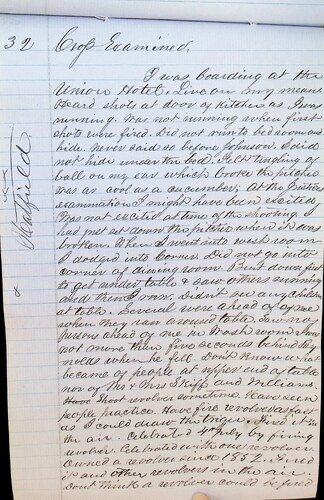 32 Cross Examined.
I was boarding at the
Union Hotel. Live on my means
Heard shots at door of kitchen as I was
running. Was not running when first
shots were fired. Did not run to bedroom and
hide. Never said so before Johnson. I did
not hide under the bed. Felt tingling of
ball on my ear which broke the pitcher
Was as cool as a cucumber. At the
examination I might have been excited
Was not excited at time of the shooting. I
had just set down the pitcher where it was
broken. When I went into wash room
I dodged into corner. Did not go into
corner of dining room. Bent down first
to get under table & saw others running
and then I ran. Didn't see any children
at table. Several were ahead of me
when they ran around table. Saw no
persons ahead of me in Wash room. Am
not more than five seconds behind
when he fell. Don't know what
became of people at upper end of table
nor of Mr & Mrs Skiff and Williams.
Shoot revolvers sometimes. Have seen
people practice. Have fired revolvers as fast
as I could draw the trigger. Fired it in
the air. Celebrated 4th July by firing
revolver. Celebrated with one revolver
Owned a revolver since 1852. Fired
it and other revolvers in the air.
Don't think a revolver could be fired
Hatfield.